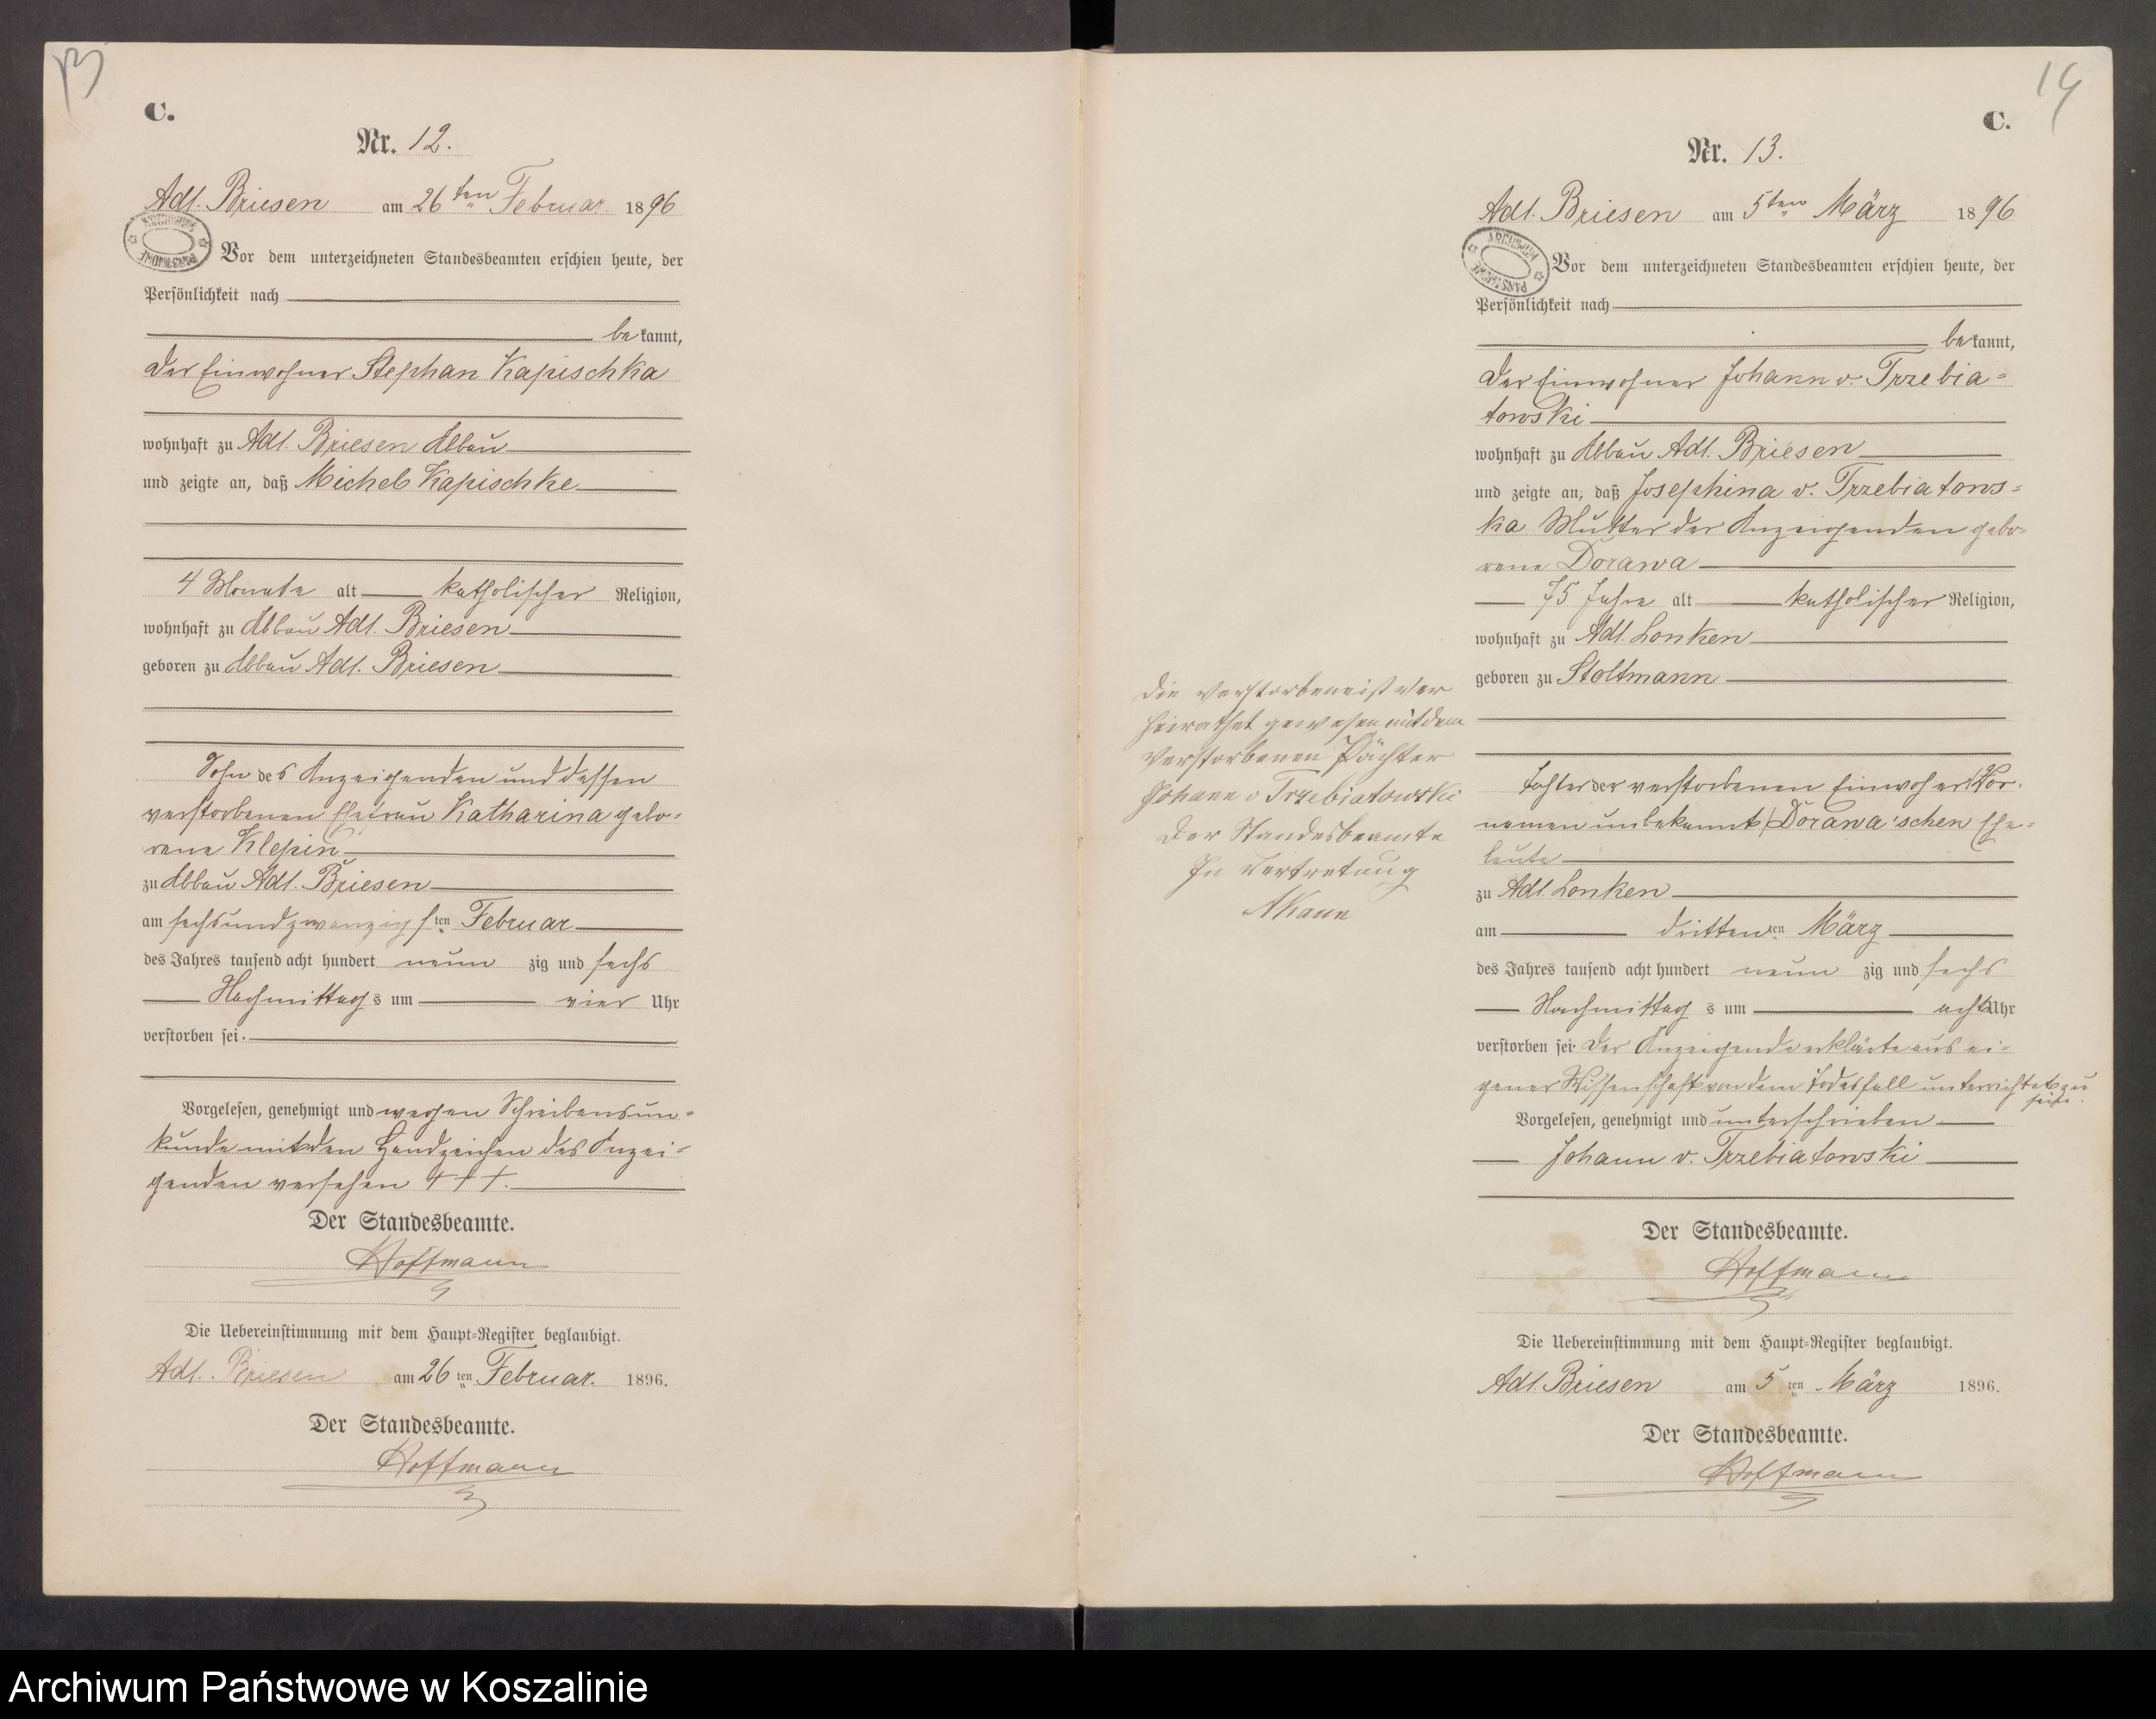 13
C.
Nr. 12.
Adl. Briesen am 26ten Februar 1896
Vor dem unterzeichneten Standesbeamten erschien heute, der
Persönlichkeit nach
bekannt,
der Einwohner Stephan Kapischka
wohnhaft zu Adl. Briesen Abbau
und zeigte an, daß Michel Kapischke
4 Monate alt katholischer Religion,
wohnhaft zu Abbau Adl. Briesen
geboren zu Abbau Adl. Briesen
Sohn des Anzeigenden und dessen
verstorbenen Ehefrau Katharina gebo-
rene Klepin
zu Abbau Adl. Briesen
am sechsundzwanzigsten Februar
des Jahres tausend acht hundert neunzig und sechs
Nachmittags um vier Uhr
verstorben sei.
Vorgelesen, genehmigt und wegen Schreibensun-
kunde mit den Handzeichen des Anzei-
genden versehen +++.
Der Standesbeamte.
Hoffmann
Die Uebereinstimmung mit dem Haupt-Register beglaubigt.
Adl. Briesen am 26ten Februar. 1896.
Der Standesbeamte.
Hoffmann
14
C.
Nr. 13.
Adl. Briesen am 5ten März 1896
ARCHIWUM PAŃSTWOWE
Vor dem unterzeichneten Standesbeamten erschien heute, der
Persönlichkeit nach
bekannt,
der Einwohner Johann v. Trzebia-
towski
wohnhaft zu Abbau Adl. Briesen
und zeigte an, daß Josephina v. Trzebiatows-
ka Mutter der Anzeigenden gebo-
rene Dorawa
75 Jahre alt katholischer Religion,
wohnhaft zu Adl. Lonken
geboren zu Stoltmann
Tochter der verstorbenen Einwohner (Vor-
namen unbekannt) Dorawa'schen Ehe-
leute
zu Adl. Lonken
am dritten März
des Jahres tausend acht hundert neunzig und sechs
Nachmittags um acht Uhr
verstorben sei. Der Anzeigende erklärte aus ei-
gener Wissenschaft von dem Todesfall unterrichtet zu
sein.
Vorgelesen, genehmigt und unterschrieben
Johann v. Trzebiatowski
Der Standesbeamte.
Hoffmann
Die Uebereinstimmung mit dem Haupt-Register beglaubigt.
Adl. Briesen am 5ten März 1896.
Der Standesbeamte.
Hoffmann
Die Verstorbene ist ver
heirathet gewesen mit dem
verstorbenen Pächter
Johann v Trzebiatowski
Der Standesbeamte
In Vertretung
Archiwum Państwowe w Koszalinie